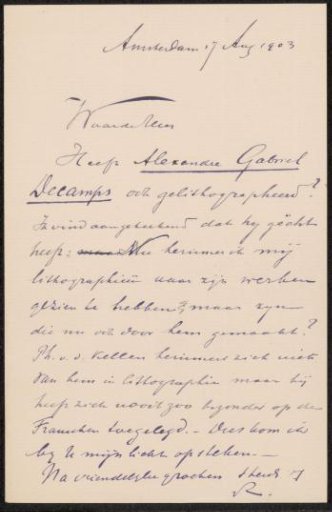 Amsterdam 17 Aug 1903
Waarde Moes
Heeft Alexandre Gabriel
Decamps ook gelithographeerd?
Ik vind aangeteekend dat hij geëtst
heeft: Nu herinner ik mij
lithographieën naar zijn werken
gezien te hebben, maar zijn
die nu ook door hem gemaakt?
Ph. v. d. Kellen herinnert zich niets
van hem in lithographie maar hij
heeft zich nooit zoo bijzonder op de
Franschen toegelegd. – Dus kom ik
bij U mijn licht opsteken. –
Na vriendelijke groeten steeds
R.